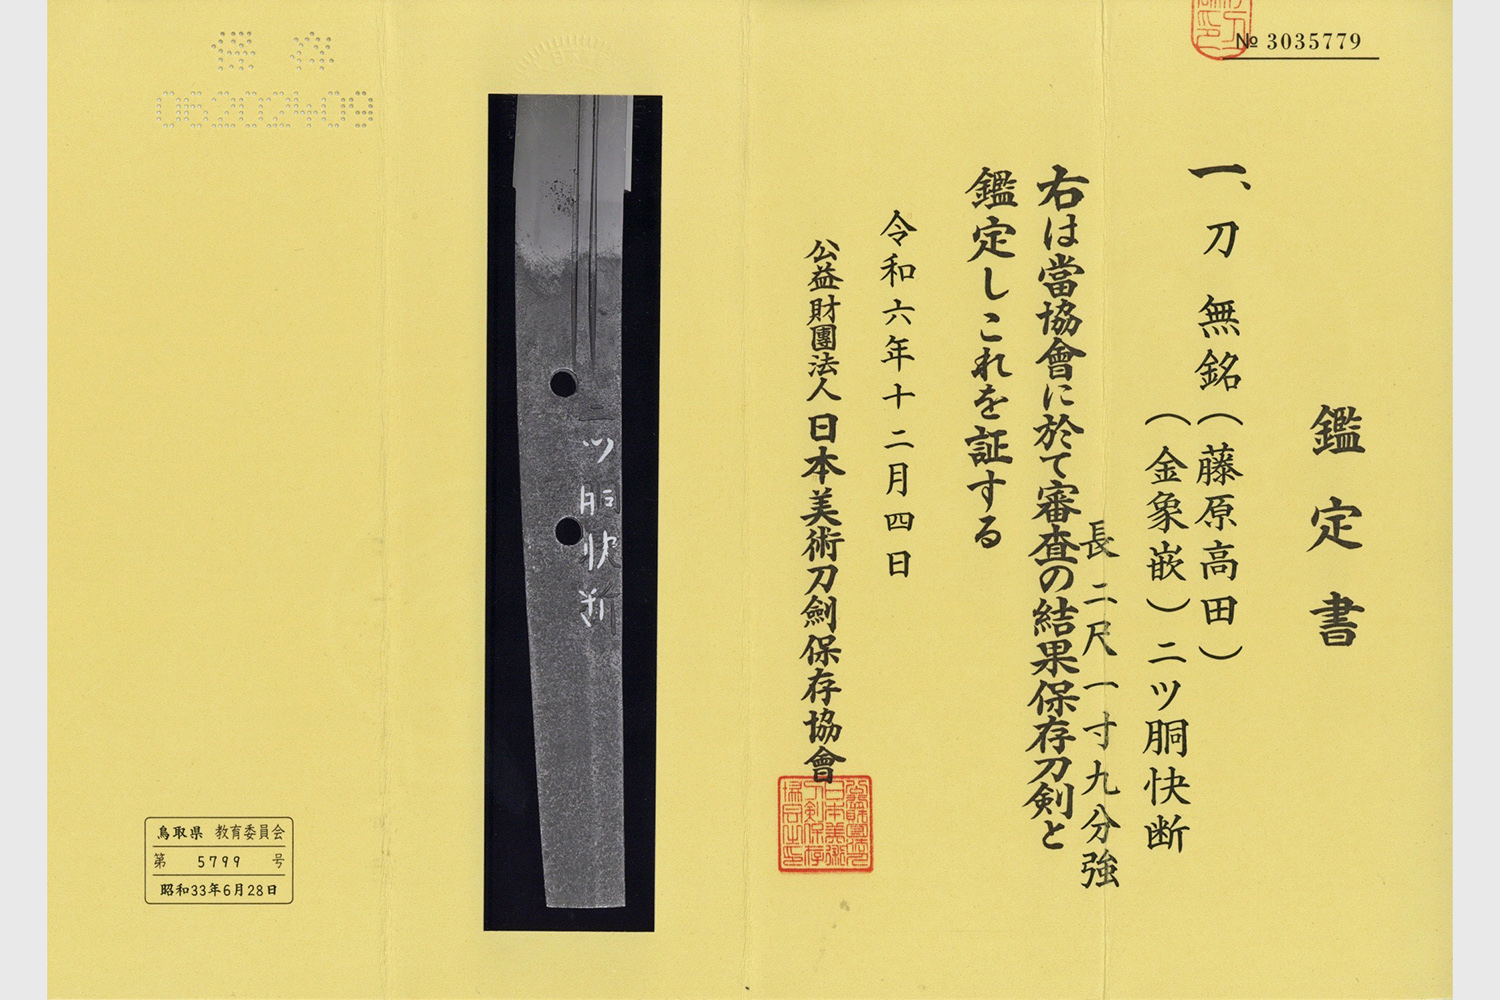 № 3035779
鑑定書
一、刀 無銘(藤原高田)
(金象嵌)二ツ胴快断
長 二尺一寸九分強
右は當協會に於て審査の結果保存刀剣と
鑑定しこれを証する
令和六年十二月四日
公益財團法人 日本美術刀劍保存協會
二ツ胴快断
保存
06202409
鳥取県 教育委員会
第 5799 号
昭和33年6月28日